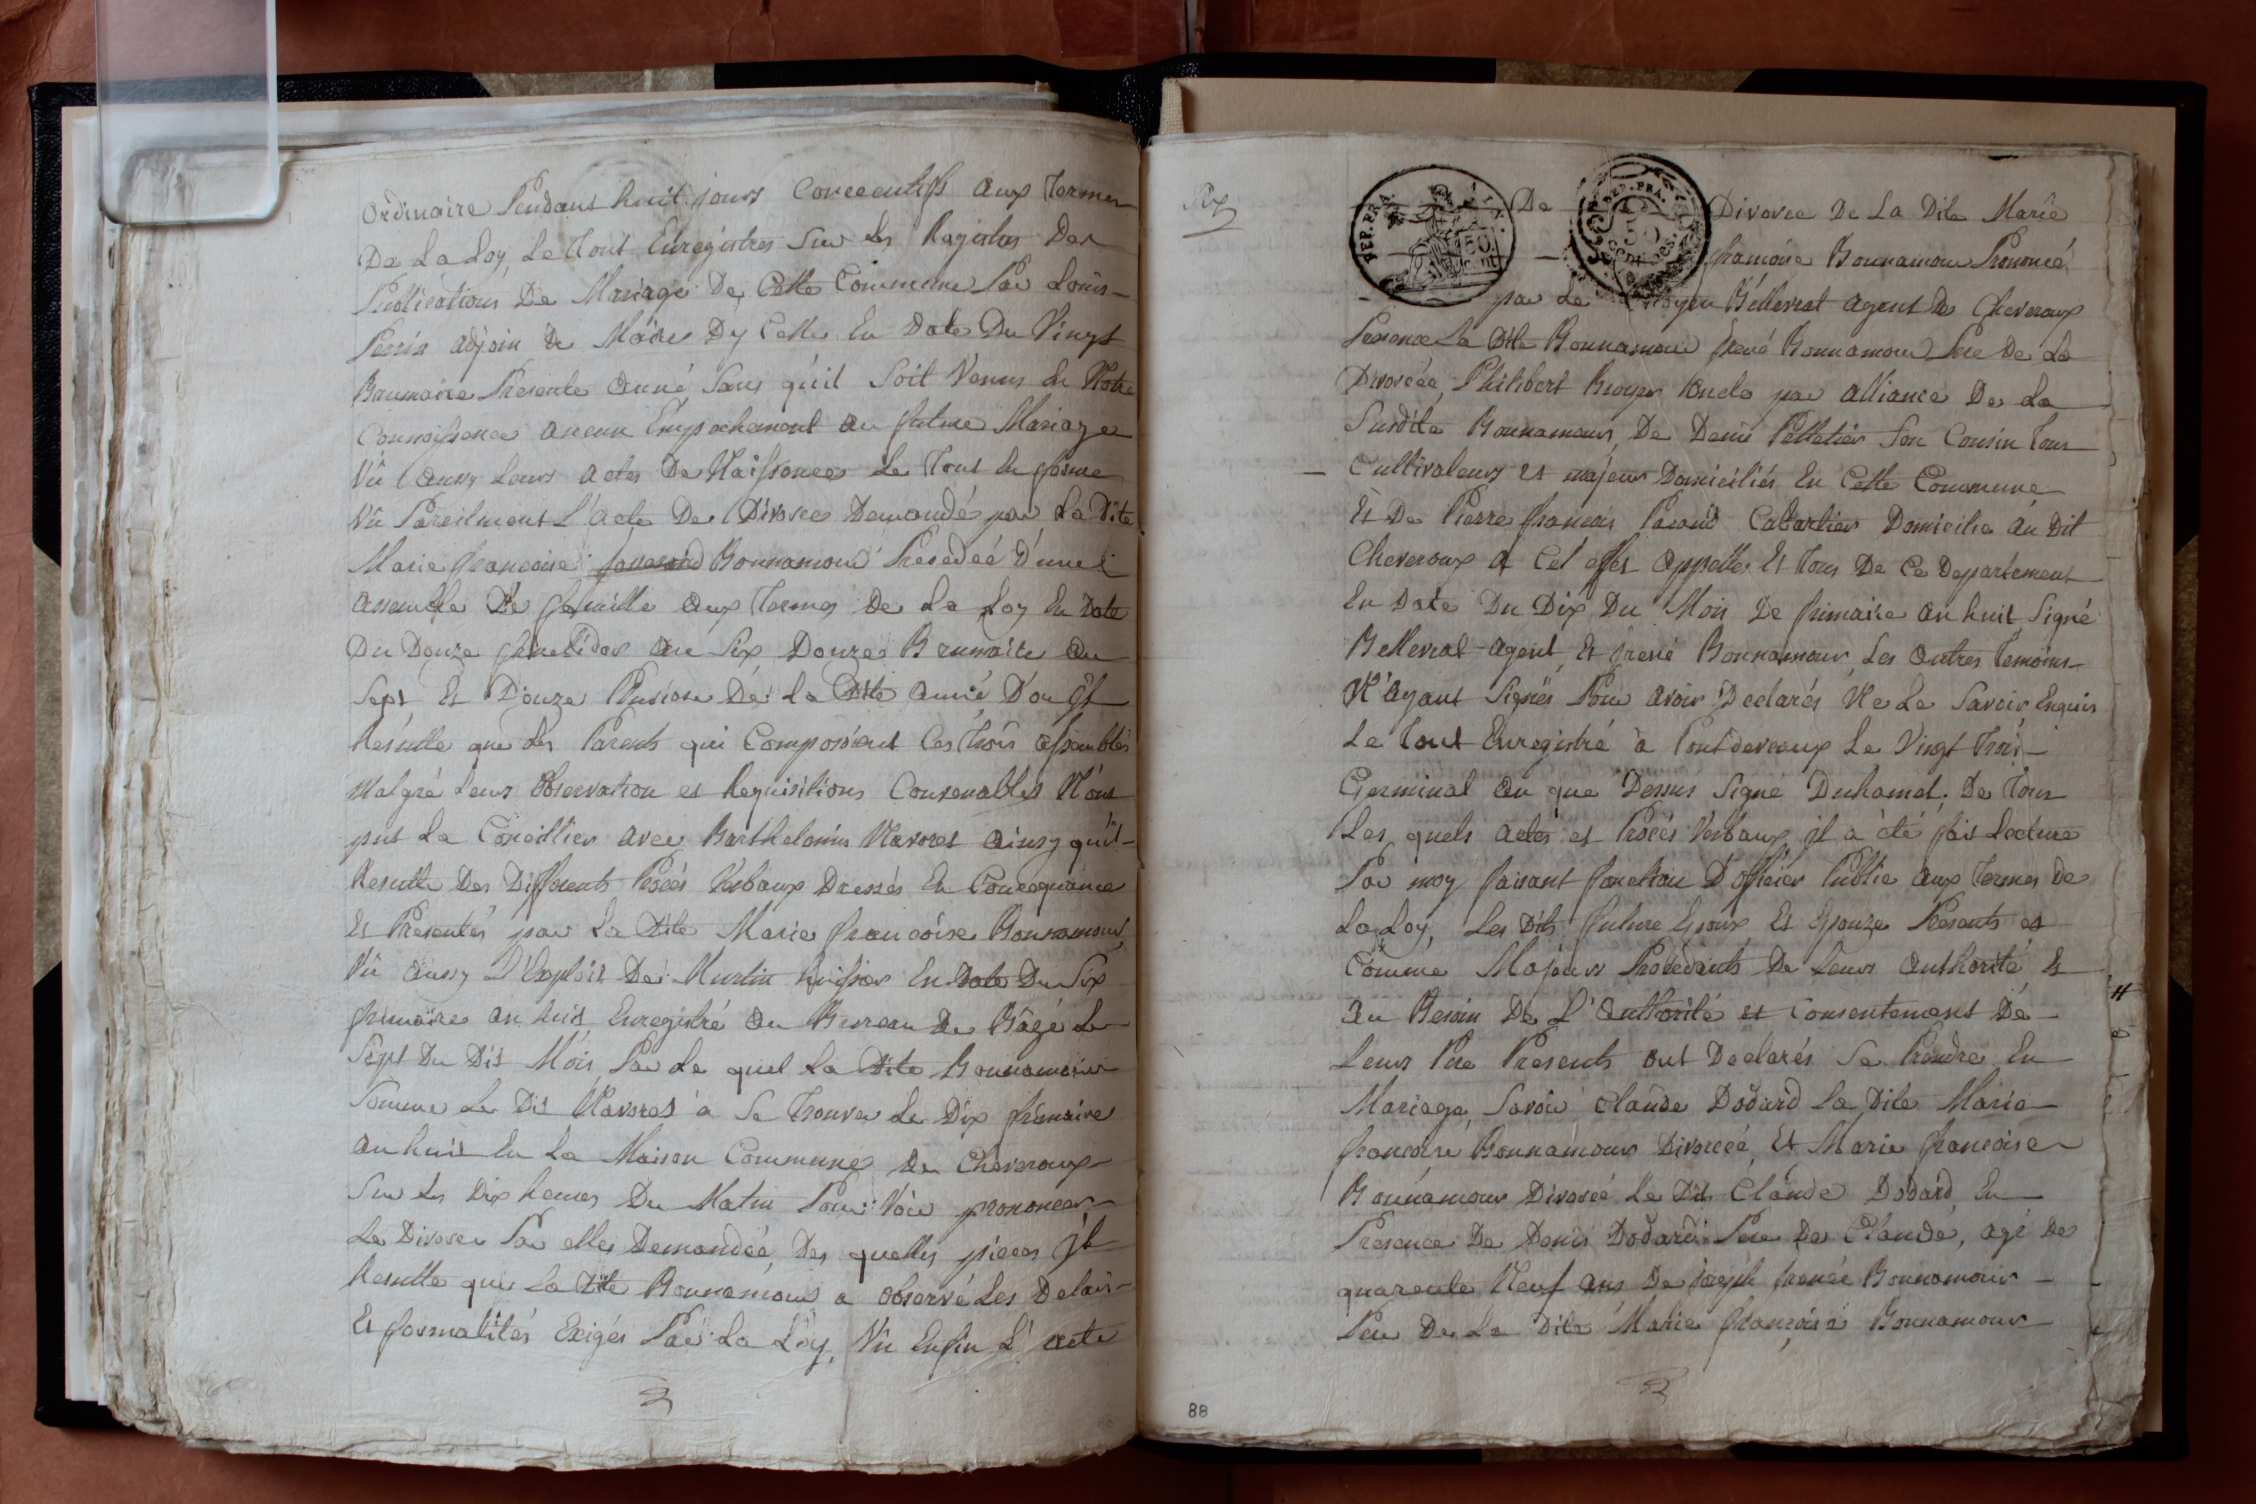 Ordinaire Pendant huit jours Concecutifs aux Termes
De La Loy, Le Tout Enregistres Sur Les Registres Des
Publications De Mariage De Cette Commune Par Louis
Perrin adjoin de Maire Dy Celle En Date Du Vingt
Brumaire Presente année, Sans qu'il Soit Venus En Notre
Connoissance aucun Empechement au future Mariage
Vû aussy Leurs actes De Naissances Le Tout En forme
Vû Pareilment L'acte De Divorce Demandé par La Dite
Marie francoise Bonnamour Precedeé D'unne
assemblée De famille aux Termes De La Loy En Date
Du Douze fructidor an Six Douze Brumaire an
Sept Et Douze Pluviose De La Dite année D'ou Jl
Resulte que Les Parents qui Composoient Ces Trois assemblés
Malgré Leurs Observation et Requisitions Convenables N'ont
put La Concillier avec Barthelemis Navoret ainsy qu'il
Resulte Des Differents Procés Verbaux Dressés En Concequance
Et Presentés par La Dite Marie francoise Bonnamour,
Vû aussy L'Exploit De Murtin huissier En Date Du Six
frimaire an huit Enregistré au Bureau De Bâgé Le
Sept Du Dit Mois, Par Le quel La Dite Bonnamour
Somme Le Dit Navoret a Se Trouver Le Dix frimaire
an huit En La Maison Commune De Cheveroux
Sur Les Dix heures Du Matin Pour Voir prononcer
Le Divorce Par elle Demandée, Des quelles pieces Jl
Resulte que La Dite Bonnamour a observé Les Delais
Et formalités Exigés Par La Loy, Vû Enfin L'acte
De Divorce De La Dite Marie
REP. FRA.
50 cent
REP. FRA.
50
francoise Bonnamour Prononcé
par Le Citoyen Bellevrat agent De Cheveroux
Presence La Dite Bonnamour frené Bonnamour Pere De La
Divorcéé, Philibert Broyer Oncle par alliance De La
Susdite Bonnamour, De Denis Pelletier Son Cousin Tous
Cultivateurs et majeur Domiciliés En Cette Commune
Et De Pierre francois Cabartier Domicilie au Dit
Cheveroux a Cet effet appellés Et Tous De Ce Departement
En Date Du Dix Du Mois De frimaire an huit Signé
Bellevrat agent Et frené Bonnamour, Les autres Temoins
N'ayant Signés Pour avoir Declarés Ne Le Savoir Enquis
Le Tout Enregistré a Pontdevaux Le Vingt Trois
Germinal an que Dessus Signé Duhamel; De Tous
Les quels actes et Procés Verbaux Jl a été fait Lecture
Par moy faisant fonction D'officier Public aux Termes De
La Loy, Les Dits future Epoux Et Epouze Presents et
Comme Majeurs Procedants De Leurs authorité Et
au Besoin De L'authorité et Consentement De
Leurs Pere Presents ont Declarés Se Prendre En
Mariage, Savoir Claude Dodard La Dite Marie
francoise Bonnamour Divorcéé, Et Marie francoise
Bonnamour Divorcé Le Dit Claude Dodard En
Presence De Denis Dodard Pere De Claude, agé De
quarente Neuf ans De joseph frenée Bonnamour
Pere De La Dite Marie françoise Bonnamour
88